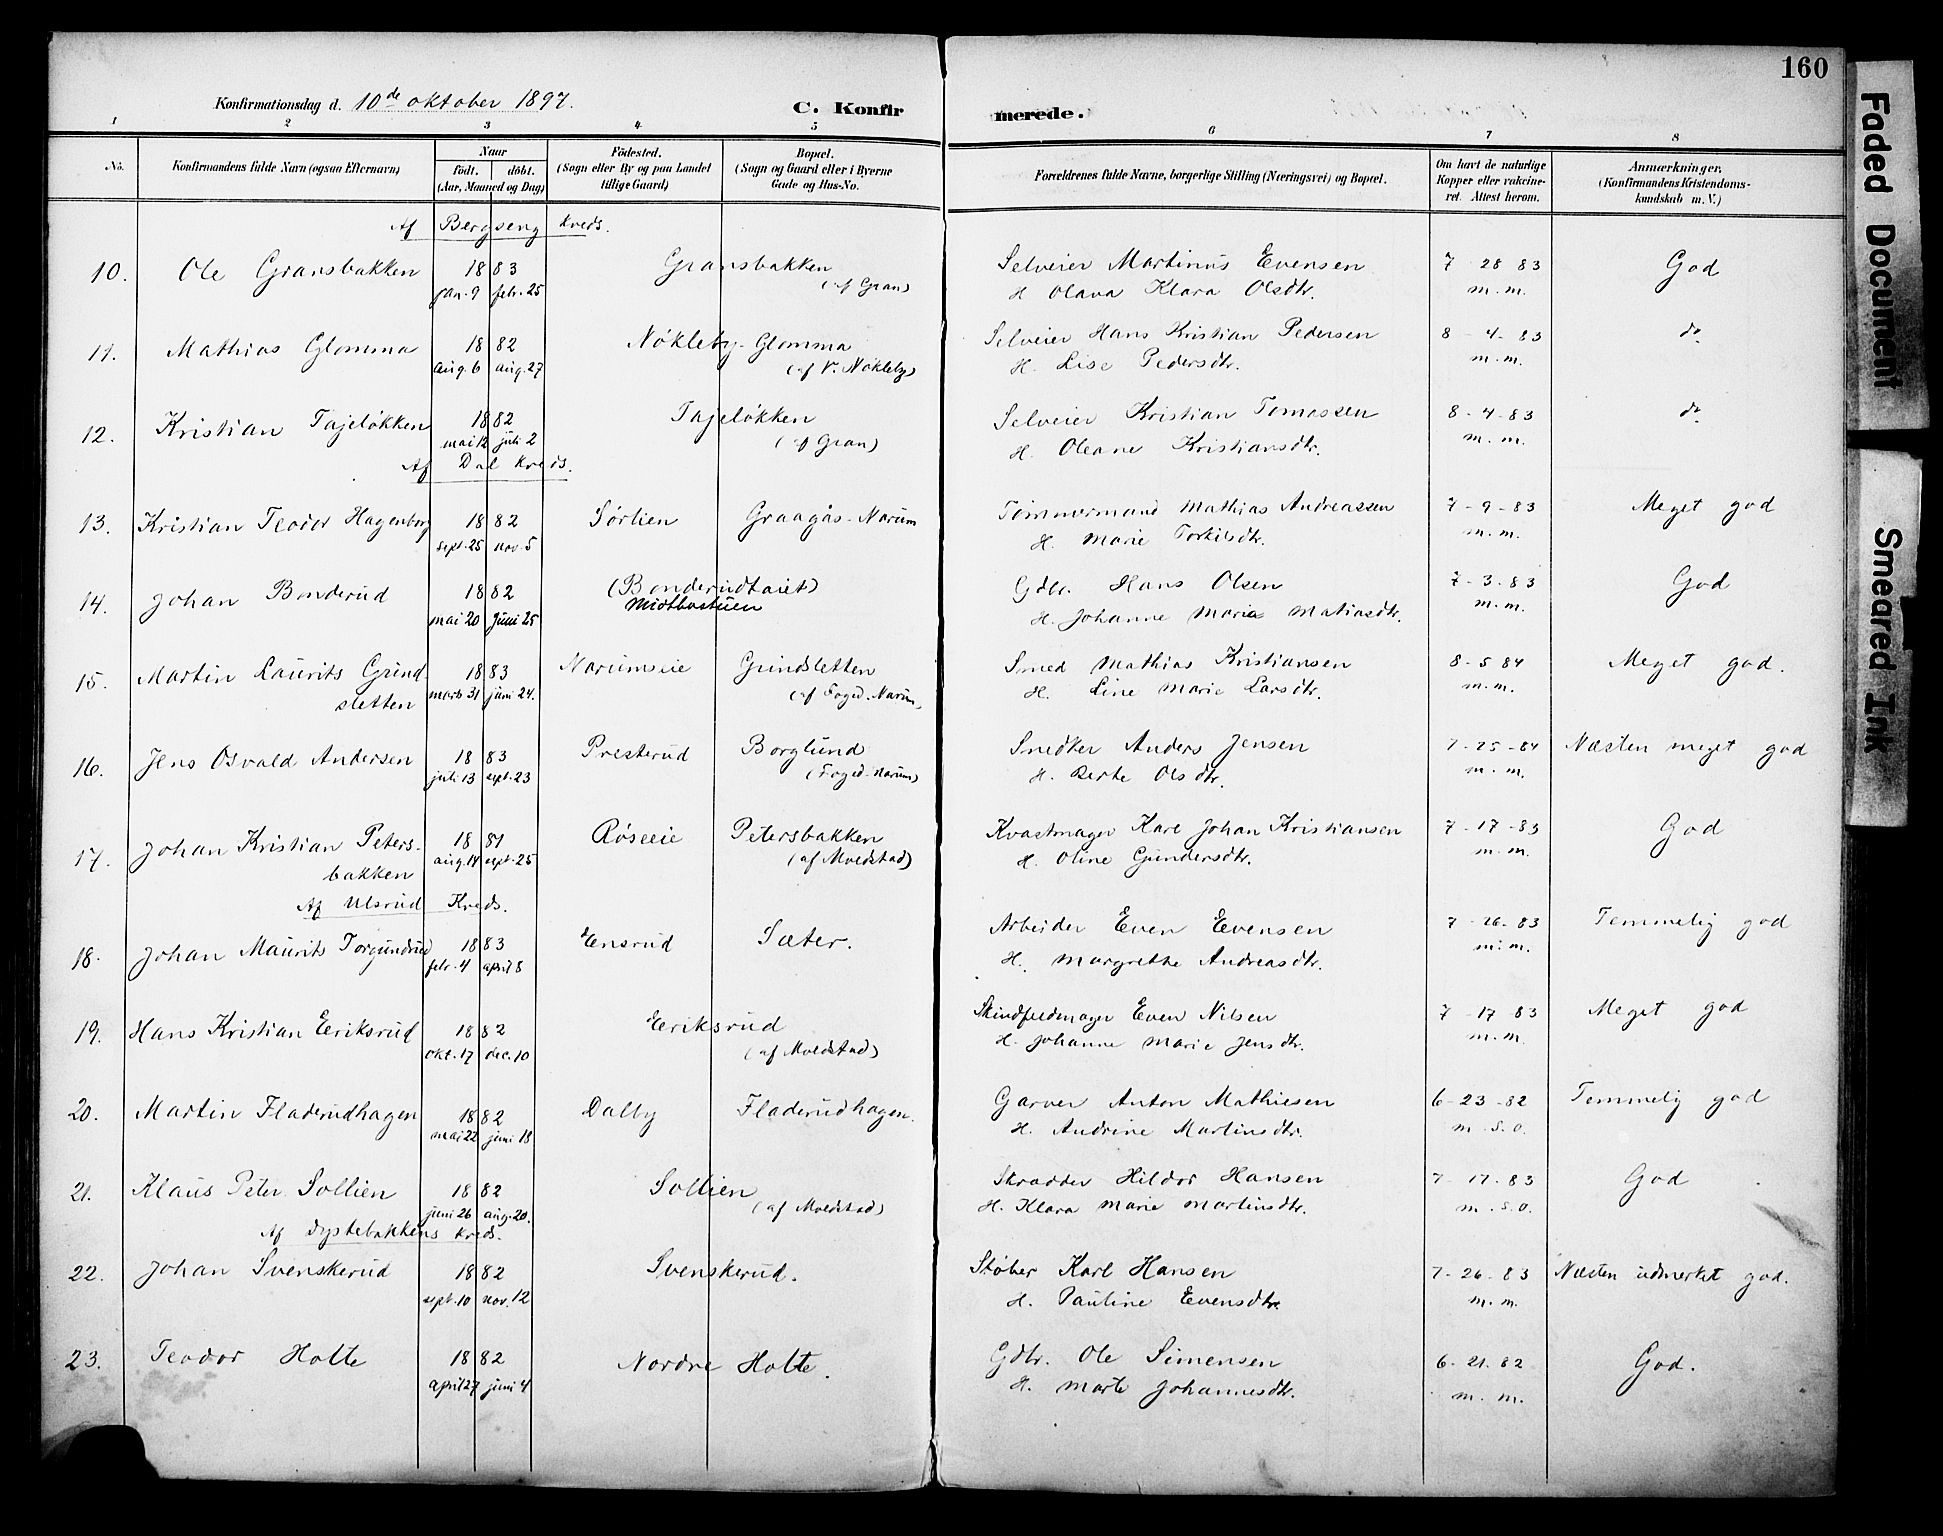 160
Konfirmationsdag d. 10de oktober 1897.
C. Konfirmerede.
1 2 3 4 5 6 7 8
No. Konfirmandens fulde Navn (ogsaa Efternavn) Naar födt. döbt. (Aar, Maaned og Dag) Födested. (Sogn eller By og paa Landet tillige Gaard) Bopæl. (Sogn og Gaard eller i Byerne Gade og Hus-No. Forældrenes fulde Navne, borgerlige Stilling (Næringsvei) og Bopæl. Om havt de naturlige Kopper eller vakcineret. Attest herom. Anmærkninger. (Konfirmandens Kristendomskundskab m. V.)
Af Bergseng Kreds.
10. Ole Gransbakken 1883 Gransbakken Selveier Martinus Evensen 7 - 28 83 God
jan. 9 febr. 25 (af Gran) H. Olava Klara Olsdtr. m. m.
11. Mathias Glomma 1882 Nökleby-Glomma Selveier Hans Kristian Pedersen 8 - 4 - 83 do
aug. 6 aug. 27 (af V. Nökleby) H. Lise Pedersdtr. m. m.
12. Kristian Tajelökken 1882 Tajelökken Selveier Kristian Tomassen 8 - 4 - 83 do
mai 12 juli 2 (af Gran) H. Oleane Kristiansdtr. m. m.
Af Dal Kreds.
13. Kristian Teodor Hagenborg 1882 Sörlien Graagås-Narum Tömmermand Mathias Andreassen 7 - 9 - 83 Meget god
sept. 25 nov. 5 H. Marie Torkilsdtr. m. m.
14. Johan Bonderud 1882 (Bonderudtaiet) Gdbr. Hans Olsen 7 - 3 - 83 God
mai 20 Juni 25 Midtbøstuen H. Johanne Marie Matiasdtr. m. m.
15. Martin Laurits Grind- 1883 Narumseie Grindsletten Smed Mathias Kristiansen 8 - 5 84 Meget god.
sletten marts 31 juni 24. (af Foged-Narum) H. Line Marie Larsdtr. m. m.
16. Jens Osvald Andersen 1883 Presterud Borglund Snedker Anders Jensen 7 - 25 - 84 Næsten meget god
juli 13 sept. 23 (Foged-Narum) H. Berte Olsdtr. m. m.
17. Johan Kristian Peters- 1881 Röseeie Petersbakken Kvastmager Karl Johan Kristiansen 7 - 17 - 83 God
bakken aug. 14 sept. 25 (af Moldstad) H. Oline Gundersdtr. m. m.
Af Ulsrud Kreds.
18. Johan Maurits Torgundrud 1883 Eensrud Sæter. Arbeider Even Evensen 7 - 26 - 83 Temmelig god
febr. 4 april 8 H. Margrethe Andreasdtr. m. m.
19. Hans Kristian Eeriksrud 1882 Eeriksrud Skindfeldmager Even Nilsen 7 - 17 - 83 Meget god
okt. 17 dec. 10 (af Moldstad) H. Johanne Marie Jensdtr. m. m.
20. Martin Fladerudhagen 1882 Dalby Fladerudhagen. Garver Anton Mathiesen 6 - 23 - 82 Temmelig god
mai 22 juni 18 H. Andrine Martinsdtr. m. s. o.
21. Klaus Peter Sollien 1882 Sollien Skrædder Hildor Hansen 7 - 17 - 83 God
juni 26 aug. 20. (af Moldstad) H. Klara Marie Martinsdtr. m. s. o.
Af Dystebakkens Kreds.
22. Johan Svenskerud 1882 Svenskerud. Støber Karl Hansen 7 - 26 - 83 Næsten udmerket god.
sept. 10 nov. 12 H. Pauline Evensdtr. m. m.
23. Teodor Holte 1882 Nordre Holte. Gdbr. Ole Simensen 6 - 21 - 82 God.
april 27 juni 4 H. Marte Johannesdtr. m. m.
Faded Document
Smeared Ink